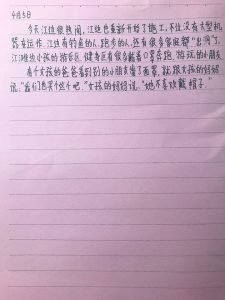 4月5日
今天江边很热闹,江边也重新开始了施工,不过没有大型机
器在运作。江边有钓鱼的人,跑步的人,还有很多家庭都“出洞”了,
江边的小孩的游乐区、健身区有很多戴着口罩奔跑、游玩的小朋友
有个女孩的爸爸看到别的小朋友戴了面罩,就跟女孩的妈妈
说:“我们也买个这个吧。”女孩的妈妈说:“她不喜欢戴帽子。”